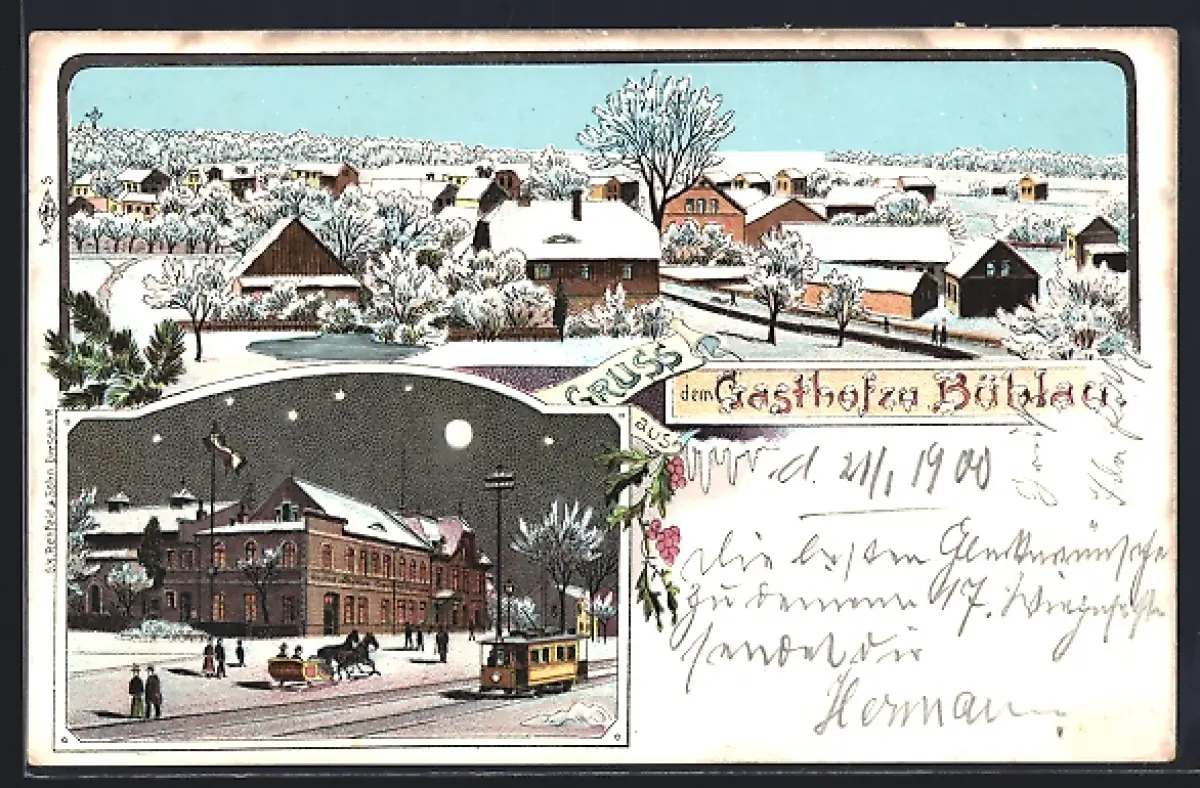 GRUSS
aus
dem Gasthof zu Bühlau.
d. 21/1 1900
Die besten Glückwünsche
zu deinem 17. Wiegenfeste
sendet dir
Hermann